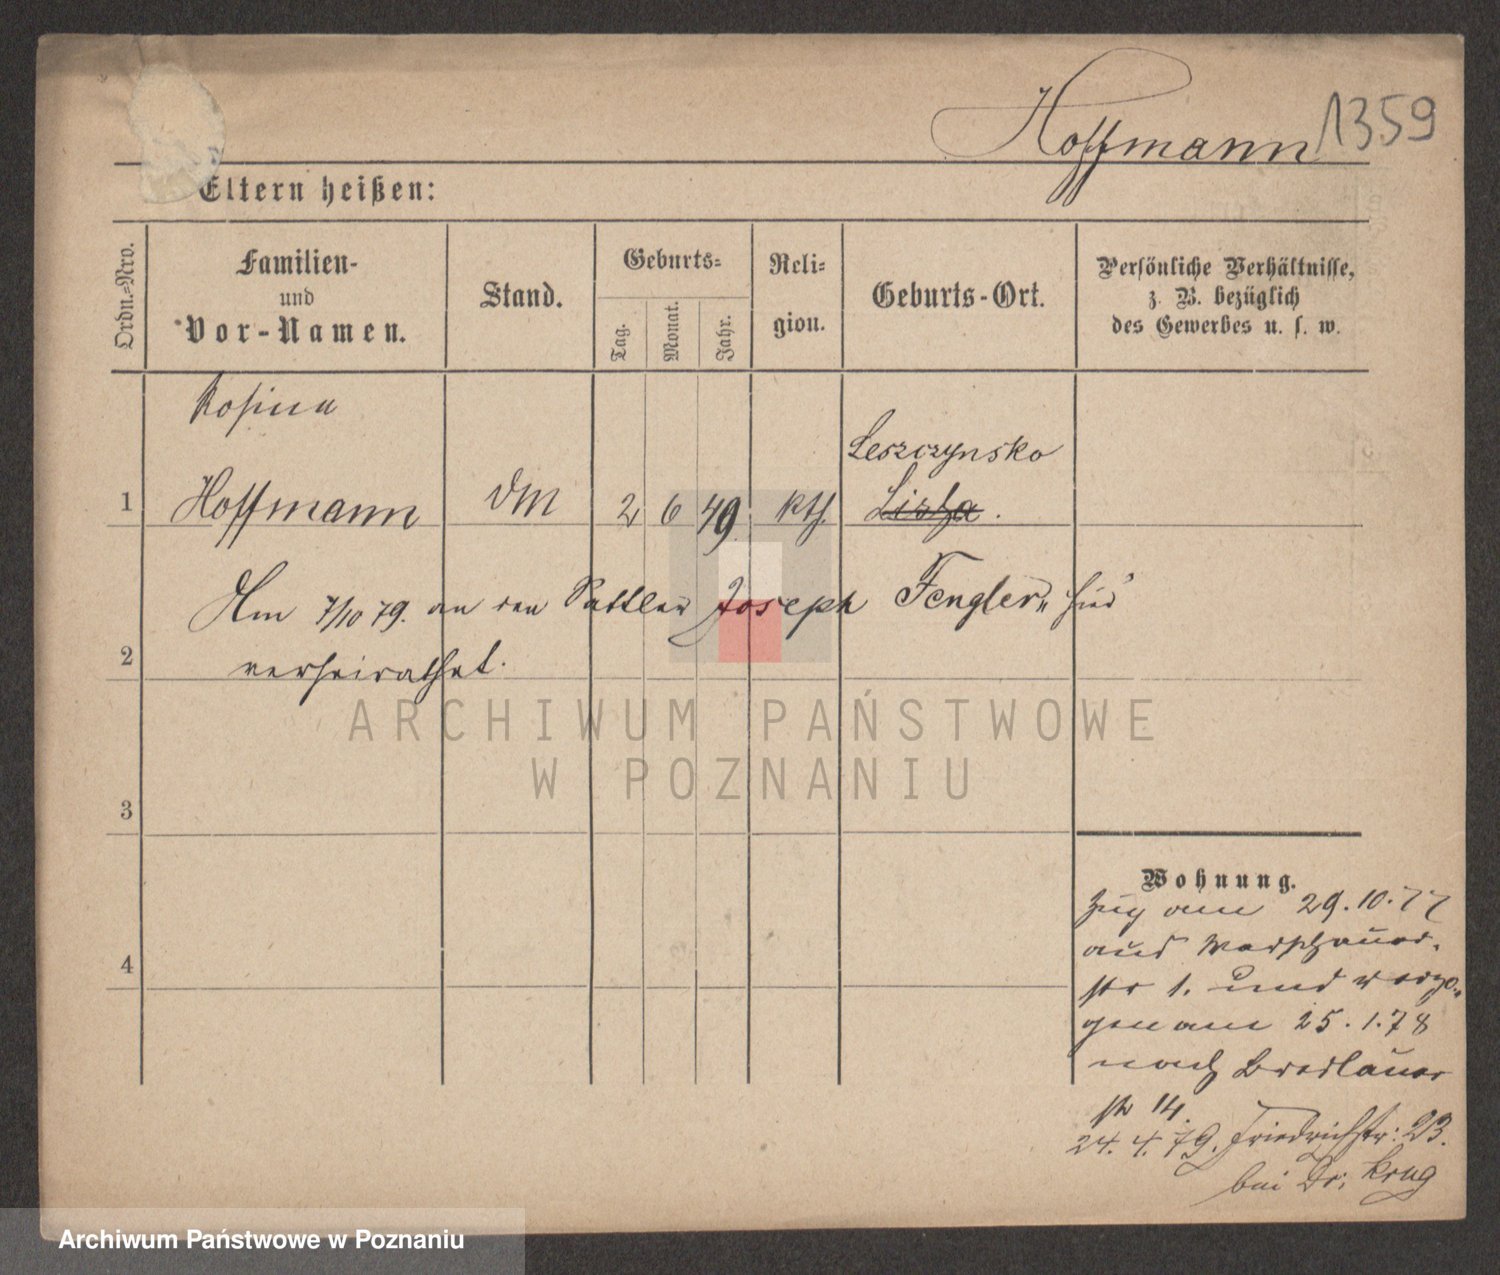 Hoffmann 1359
Eltern heißen:
Ordn.=Nro.
Familien-
und
Vor-Namen.
Stand.
Geburts=
Tag.
Monat.
Jahr.
Reli=
gion.
Geburts-Ort.
Persönliche Verhältnisse,
z. B. bezüglich
des Gewerbes u. s. w.
Rosina
Leszczynsko
1 Hoffmann DM 2 6 49 kth. Lissa.
Am 7/10 79. an den Sattler Joseph Fengler, hier
2 verheirathet.
ARCHIWUM PAŃSTWOWE
W POZNANIU
3
4
Wohnung.
Zug am 29.10.77
aus Warschauer-
str 1. und verzo-
gen am 25.1.78
nach Breslauer
str 14.
24.4.79. Friedrichstr: 23.
bei Dr: Krug
Archiwum Państwowe w Poznaniu